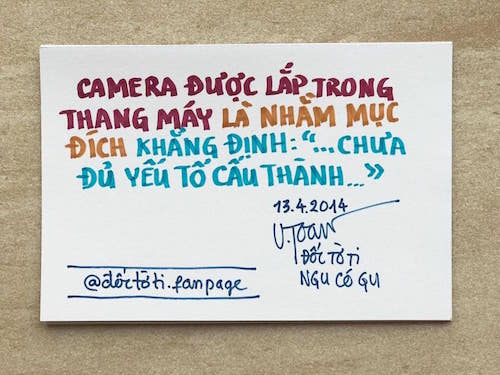 CAMERA ĐƯỢC LẮP TRONG
THANG MÁY LÀ NHẰM MỤC
ĐÍCH KHẲNG ĐỊNH: "...CHƯA
ĐỦ YẾU TỐ CẤU THÀNH..."
13.4.2014
V.Toan
ĐỐC TỜ TI
NGU CÓ GU
@đốctờti.fanpage